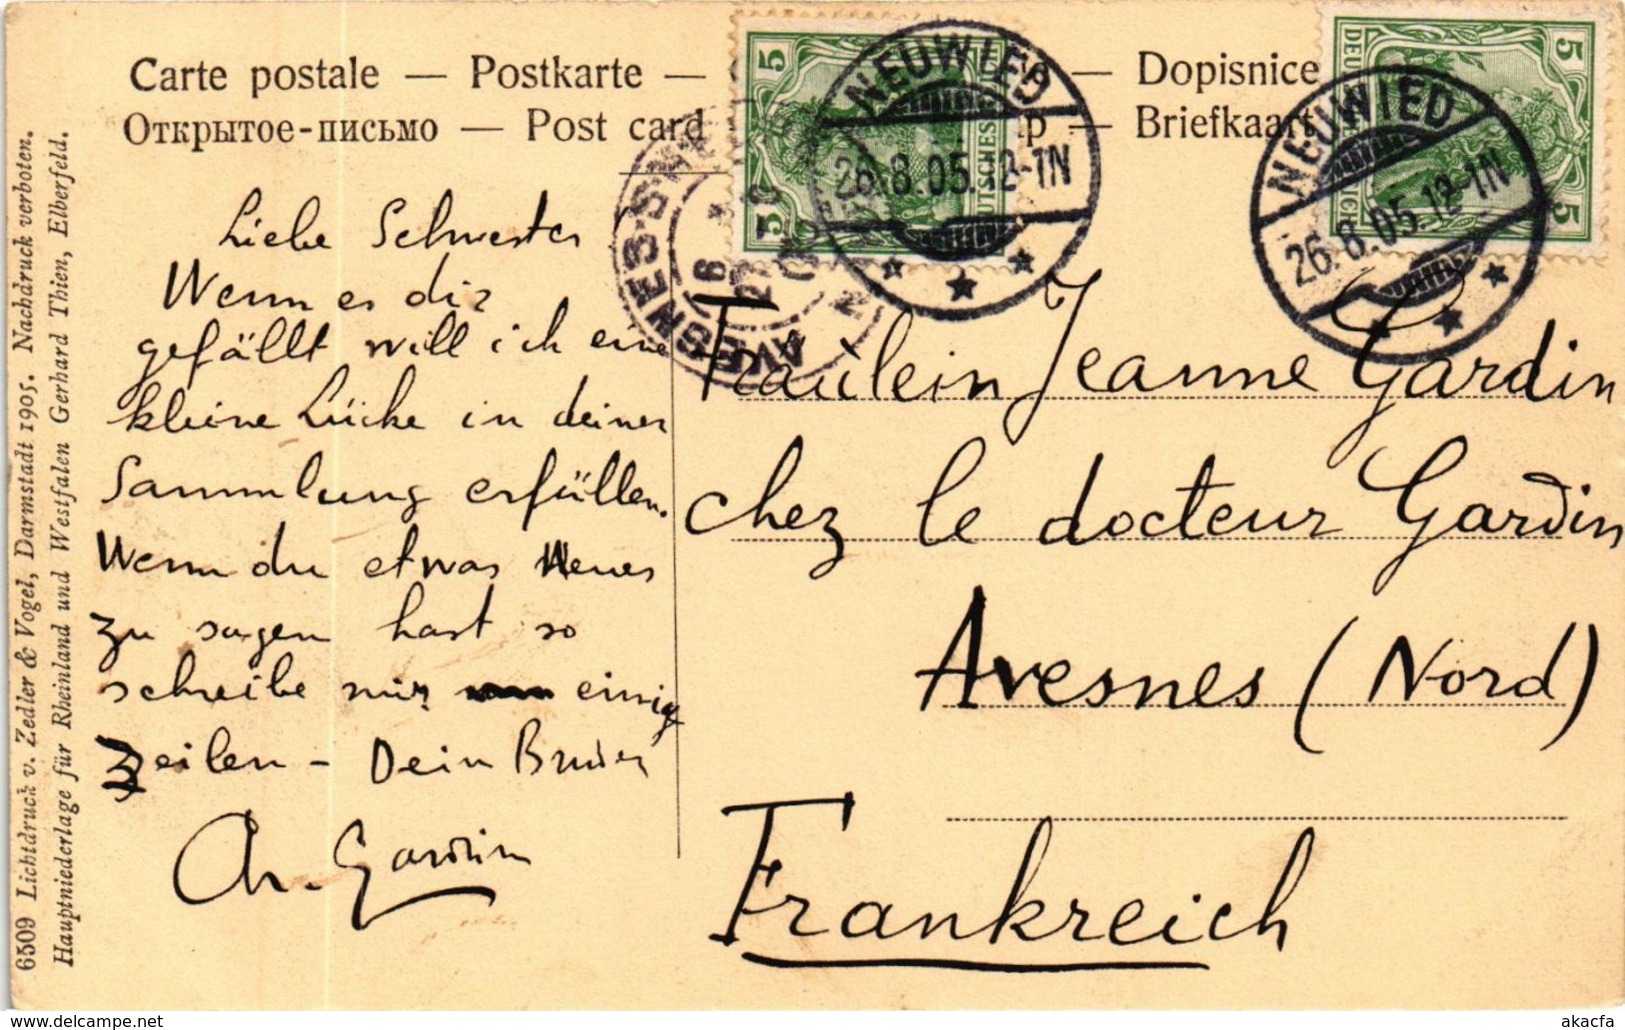 Carte postale — Postkarte —
— Dopisnice
Открытое-письмо — Post card
— Briefkaart
5
5
DEUTSCHES
5
5
NEUWIED
26.8.05.12-1N
NEUWIED
26.8.05.12-1N
AVESNES-S-
Liebe Schwester
Wenn es dir
gefällt will ich eine
kleine Lücke in deiner
Sammlung erfüllen.
Wenn du etwas Neues
zu sagen hast so
schreibe mir einig
Zeilen - Dein Bruder
Ch. Gardin
Fraülein Jeanne Gardin
chez le docteur Gardin
Avesnes (Nord)
Frankreich
6509 Lichtdruck v. Zedler & Vogel, Darmstadt 1905. Nachdruck verboten.
Hauptniederlage für Rheinland und Westfalen Gerhard Thien, Elberfeld.
akacfa